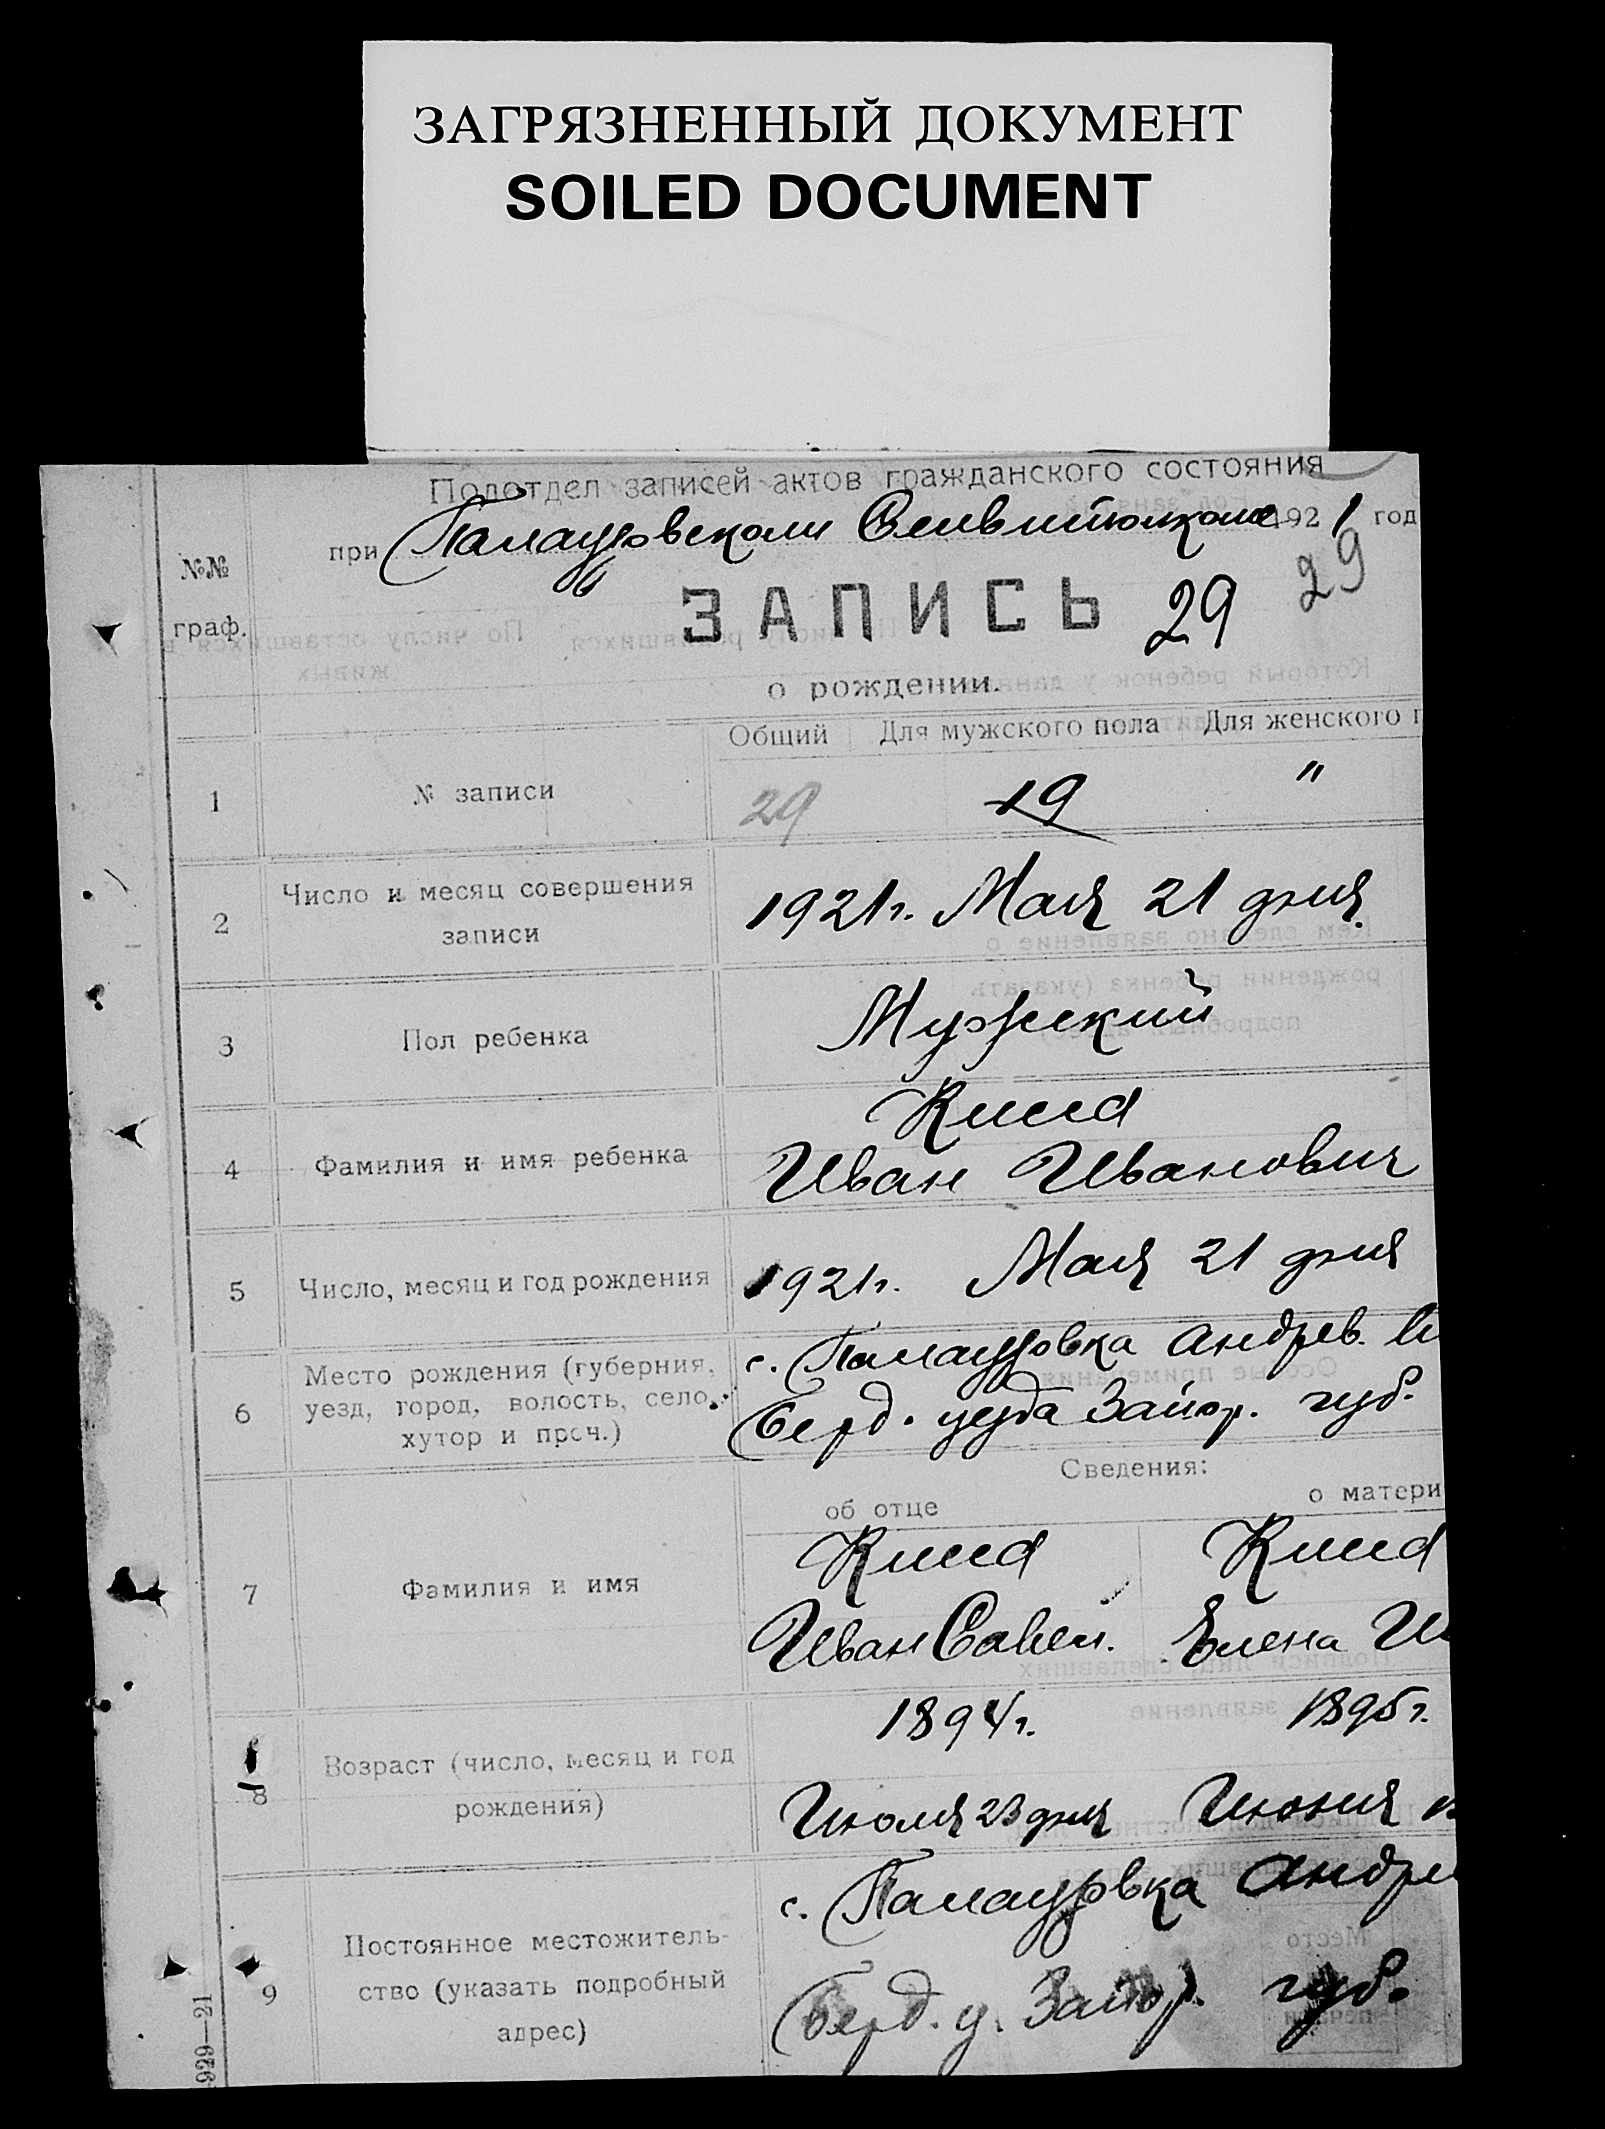 ЗАГРЯЗНЕННЫЙ ДОКУМЕНТ
SOILED DOCUMENT
Подотдел записей актов гражданского состояния
при 1921 год
№№
граф.
ЗАПИСЬ 29 29
о рождении.
Общий Для мужского пола Для женского п
1 № записи 29 19 "
2 Число и месяц совершения
записи
1921г. Мая 21 дня
3 Пол ребенка Мужский
4 Фамилия и имя ребенка
Иван Иванович
5 Число, месяц и год рождения 1921г. Мая 21 дня
6 Место рождения (губерния,
уезд, город, волость, село,
хутор и проч.)
с. Андрев.
Берд. уезда Запор. губ.
Сведения:
об отце о матери
7 Фамилия и имя
Иван Савел. Елена И
8 Возраст (число, месяц и год
рождения)
1894г. 1895г.
Июля 23 дня Июня
9 Постоянное местожитель-
ство (указать подробный
адрес)
с. Андре
Берд. у. Запор. губ.
929—21